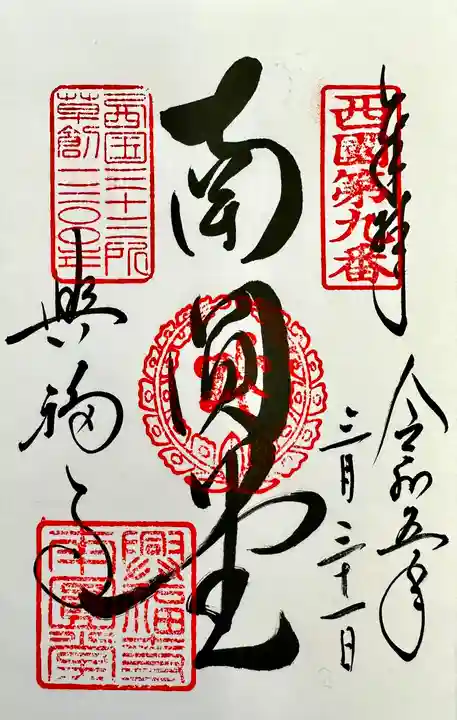 奉拝
西國第九番
令和五年
三月三十一日
南圓堂
西国三十三所
草創一三〇〇年
興福寺
興福寺
南円堂